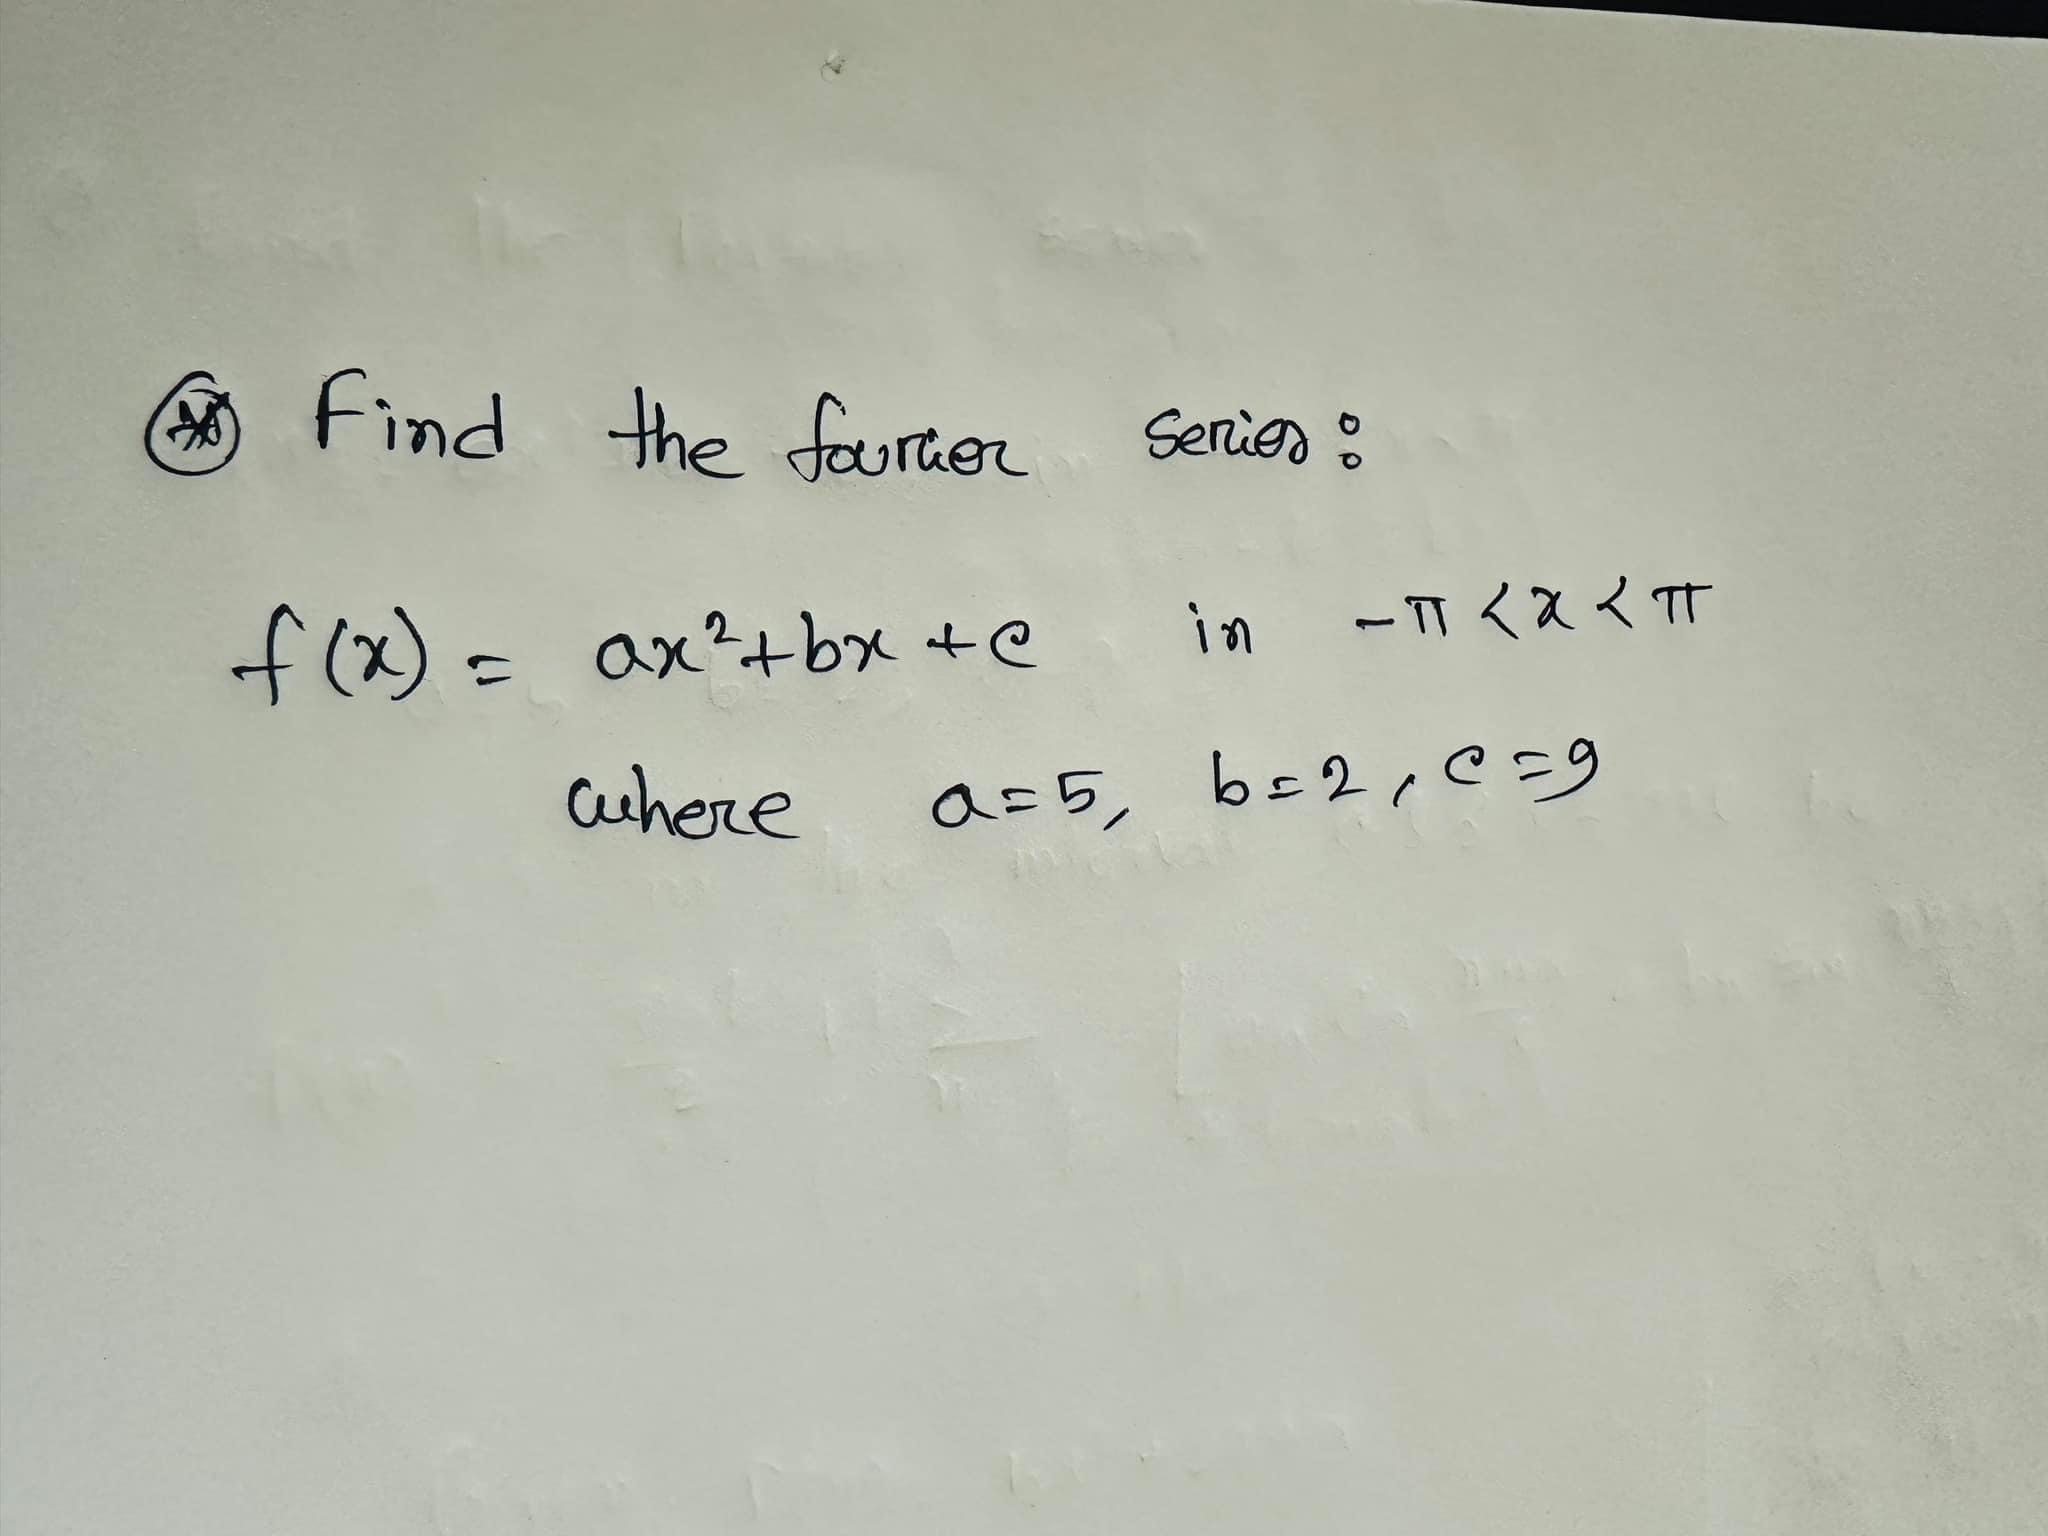 Find the fourier series:
f(x) = ax²+bx+c in -π<x<π
where a=5, b=2, c=9